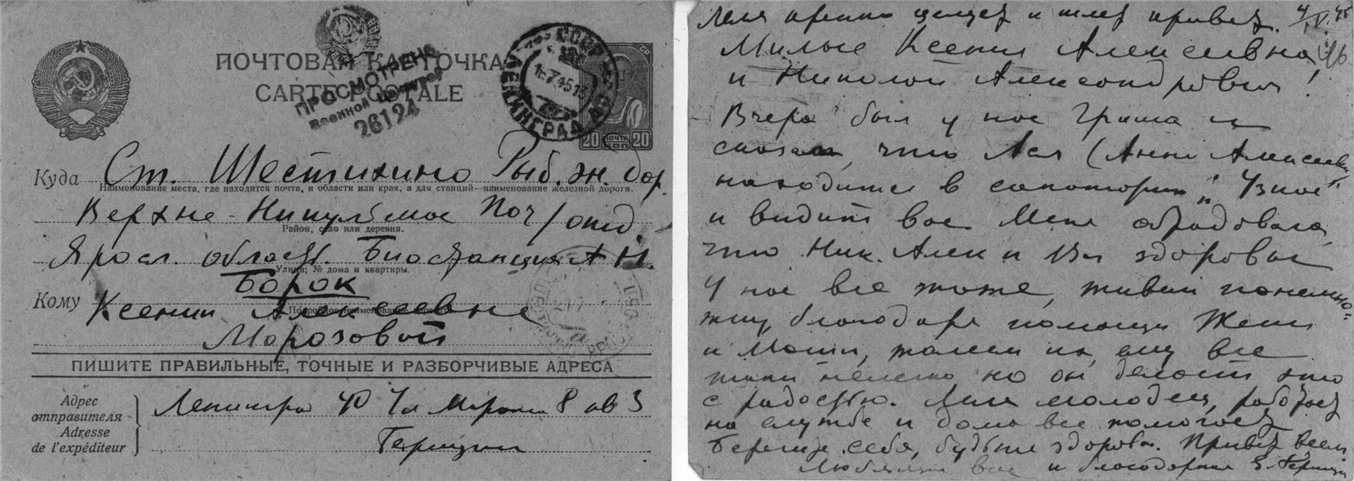 ПОЧТОВАЯ КАРТОЧКА
CARTE POSTALE
ПРОСМОТРЕНО
Военной Цензурой
26124
СССР
ЛЕНИНГРАД
20 20
Куда Ст. Шестихино Рыб. ж. дор.
Наименование места, где находится почта, и области или края, а для станций—наименование железной дороги.
Верхне-Никульское Поч/отд.
Район, село или деревня.
Яросл. область. Биостанция А Н.
Улица, № дома и квартиры.
Борок
Кому Ксении Алексеевне
Морозовой
ПИШИТЕ ПРАВИЛЬНЫЕ, ТОЧНЫЕ И РАЗБОРЧИВЫЕ АДРЕСА
Адрес
отправителя
Adresse
de l'expéditeur
Ленинград 40 8 кв 3
Герцин
Леля крепко целует и шлет привет.
Милые Ксения Алексеевна
и Николай Александрович!
Вчера был у нас Гриша и
сказал, что Ася (Анна Алексеевна
находится в санатории „Узкое"
и видит вас Меня обрадовало,
что Ник. Алек и Вы здоровы
У нас все тоже, живем понемно-
жку, благодаря помощи Жени
и Моти, жалею их, ему все
таки нелегко но он делает это
с радостью. Леля молодец, работает
на службе и дома все помогает
Берегите себя, будьте здоровы. Привет всем
Любящая вас и благодарная